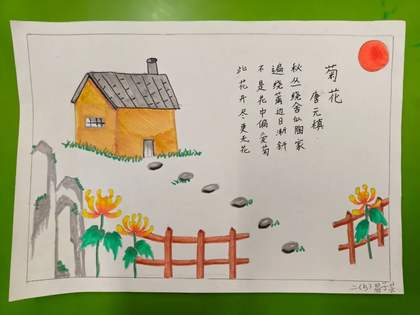 菊花
唐元稹
秋丛绕舍似陶家
遍绕篱边日渐斜
不是花中偏爱菊
此花开尽更无花
二(5)